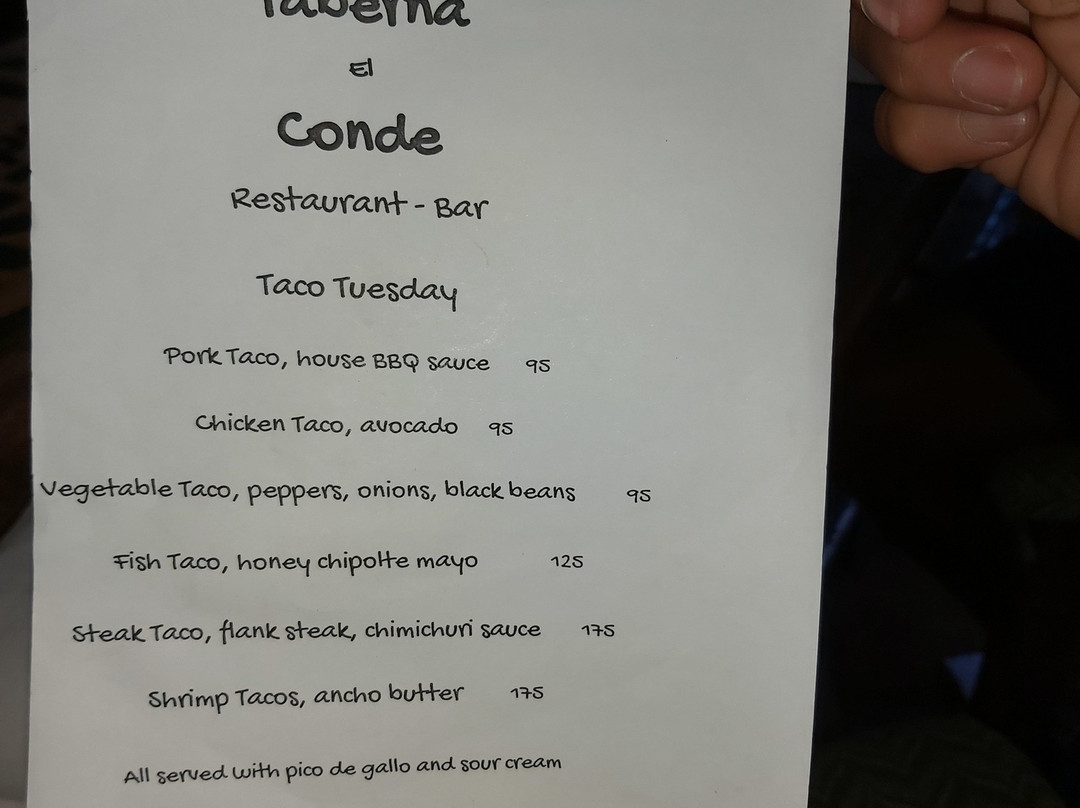 Taberna
El
Conde
Restaurant - Bar
Taco Tuesday
Pork Taco, house BBQ sauce 95
Chicken Taco, avocado 95
Vegetable Taco, peppers, onions, black beans 95
Fish Taco, honey chipotte mayo 125
Steak Taco, flank steak, chimichuri sauce 175
Shrimp Tacos, ancho butter 175
All served with pico de gallo and sour cream